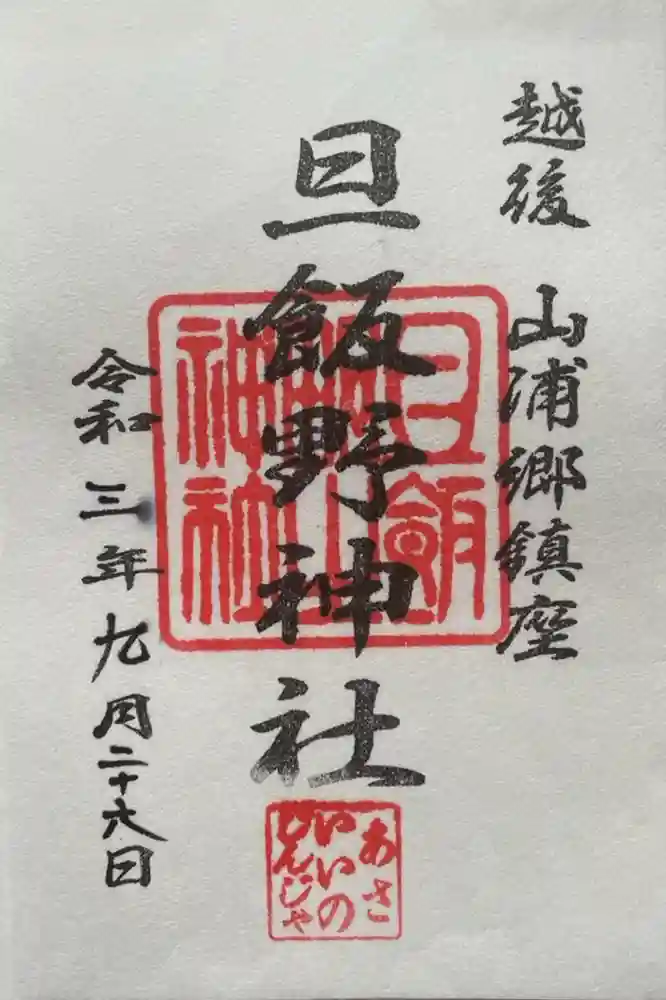 越後 山浦郷鎮座
旦飯野神社
令和三年九月二十六日
旦飯
野山
神社
あさ
いいの
じんじゃ